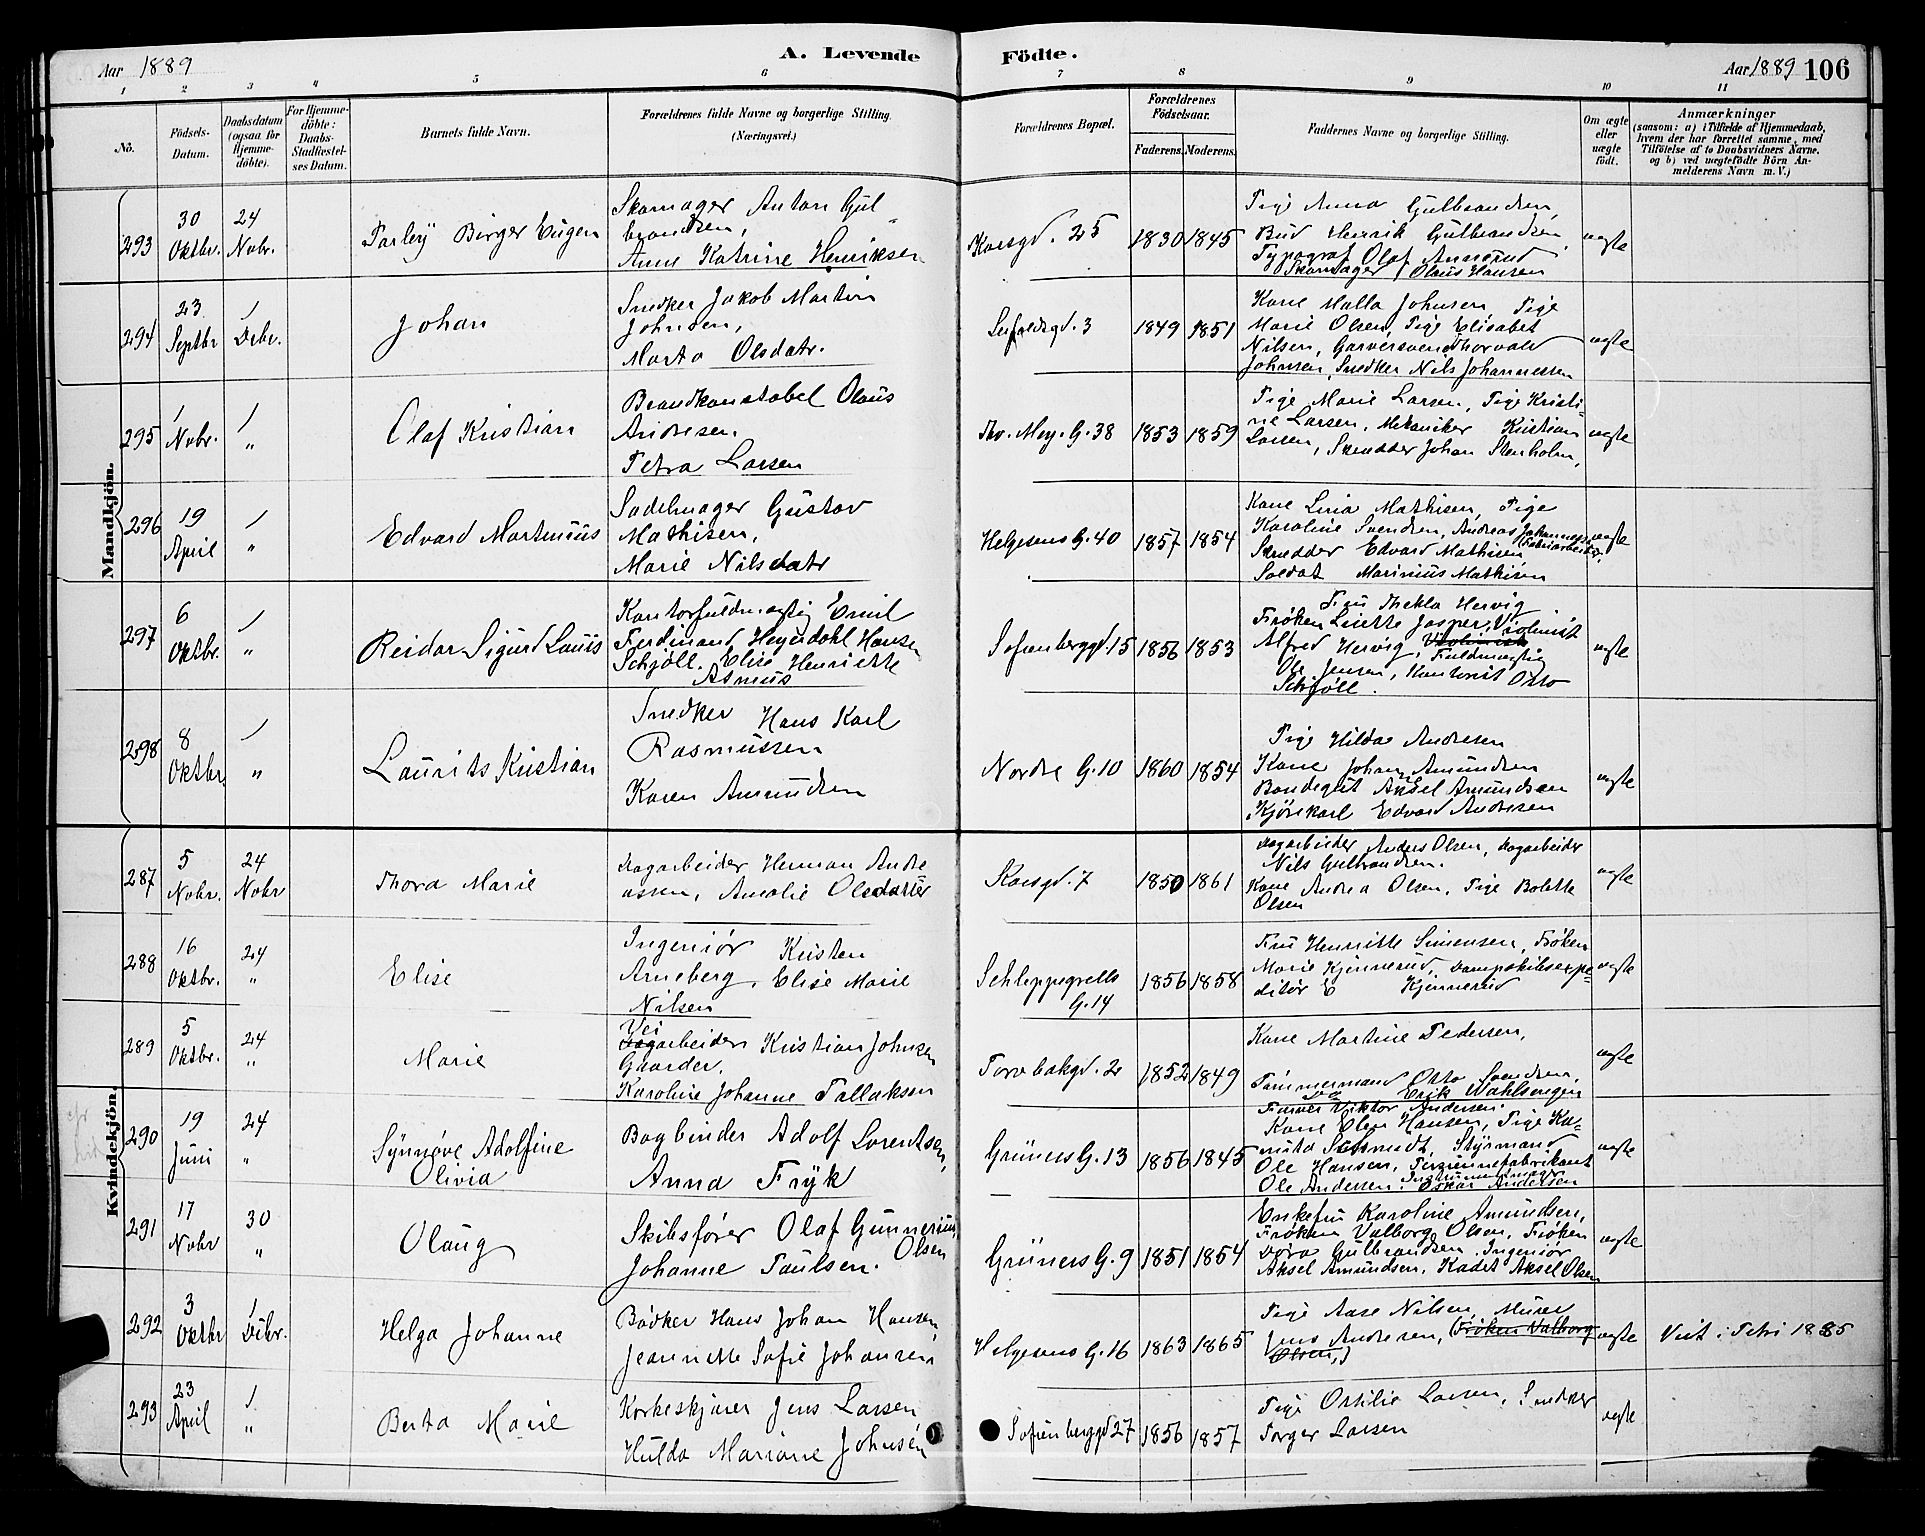 Aar 1889
A. Levende Födte.
Aar 1889 106
1 2 3 4 5 6 7 8 9 10 11
No.
Födsels-Datum.
Daabsdatum (ogsaa for Hjemmedöbte).
For Hjemmedöbte: Daabs-Stadfæstelses Datum.
Barnets fulde Navn.
Forældrenes fulde Navne og borgerlige Stilling. (Næringsvei.)
Forældrenes Bopæl.
Forældrenes Födselsaar.
Faderens. Moderens.
Faddernes Navne og borgerlige Stilling.
Om ægte eller uægte födt.
Anmærkninger
(saasom: a) i Tilfælde af Hjemmedaab,
hvem der har forrettet samme, med
Tilföielse af to Daabsvidners Navne.
og b) ved uægtefödte Börn Anmelderens Navn m. V.)
Mandkjön.
293 30 Oktbr. 24 Novbr. Farley Birger Eugen
Skomager Anton Gulbrandsen,
Anne Katrine Henriksen
Korsgd. 25 1830 1845
Pige Anna Gulbrandsen,
Bud Henrik Gulbrandsen,
Typograf Olaf Annerud
Skomager Olaus Hansen
ægte
294 23 Septbr 1 Debr. Johan
Snedker Jakob Martin
Johnsen,
Marta Olsdatr.
Seifaldsgd. 3 1849 1851
Kone Malla Johnsen, Pige
Marie Olsen, Pige Elisabet
Nilsen, Garversvend Thorvald
Johnsen, Snedker Nils Johannessen
ægte
295 1 Nobr. 1 " Olaf Kristian
Brandkonstabel Olaus
Andresen.
Petra Larsen
Thv. Mey. G. 38 1853 1859
Pige Marie Larsen, Pige Kristine
Larsen, Mekaniker Kristian
Larsen, Skrædder Johan Stenholm,
ægte
296 19 April 1 " Edvard Martinius
Sadelmager Gustav
Mathisen,
Marie Nilsdatr
Helgesens G. 40 1857 1854
Kone Lina Mathisen, Pige
Karoline Svendsen, Andreas Johannesen
Skrædder Edvard Mathisen
Soldat Marinius Mathisen
ægte
297 6 Oktbr. 1 " Reidar Sigurd Louis
Kontorfuldmægtig Emil
Ferdinand Heyerdahl Hansen
Schjöll. Elise Henriette
Asmus
Sofienberggd. 15 1856 1853
Fru Thekla Hervig
Frøken Linette Jasper, Violinist
Alfred Hervig, Violinist Fuldmægtig
Ole Jensen, Kontorist Otto
Schjöll.
ægte
298 8 Oktbr. 1 " Laurits Kristian
Snedker Hans Karl
Rasmussen
Karen Amundsen
Nordre G. 10 1860 1854
Pige Hilda Andresen
Kone Johan Amundsen
Bondegut Aksel Amundsen
Kjörekarl Edvard Andresen
ægte
Kvindekjön.
287 5 Nobr. 24 Nobr Thora Marie
Dagarbeider Herman Andreassen,
Amalie Olsdatter
Korsgd. 7 1850 1861
Dagarbeider Anders Olsen, Dagarbeider
Nils Gulbrandsen.
Kone Andrea Olsen, Pige Bolette
Olsen
ægte
288 16 Oktbr. 24 " Elise
Ingeniør Kristen
Arneberg, Elise Marie
Nilsen
Schleppegrells G. 14 1856 1858
Fru Henriette Simensen, Frøken
Marie Kjennerud, Dampskibsexpeditör
E Kjennerud
ægte
289 5 Oktbr. 24 " Marie
Vei
Dagarbeider Kristian Johnsen
Gaarder.
Karoline Johanne Tallaksen
Torvbakgd. 2 1852 1849
Kone Martine Pedersen,
Tømmermand Otto Svendsen,
Erik Wahlsengen
ægte
290 19 Juni 24 " Synnøve Adolfine
Olivia
Bogbinder Adolf Lorentsen,
Anna Fryk
Grüners G. 13 1856 1845
Farver Viktor Andersen
Kone Elen Hansen, Pige
Schmidt, Styrmand
Ole Hansen, Persiennefabrikant
Ole Andersen. Instrumentmager Oskar Andersen
ægte
291 17 Nobr 30 " Olaug
Skibsfører Olaf Gunnerius
Olsen
Johanne Paulsen.
Grüners G. 9 1851 1854
Enkefru Karoline Amundsen,
Frøken Valborg Olsen, Frøken
Dora Gulbrandsen. Ingeniør
Aksel Amundsen, Kadet Aksel Olsen
ægte
292 3 Oktbr 1 Debr. Helga Johanne
Bødker Hans Johan Hansen,
Jeannette Sofie Johansen
Helgesens G. 16 1863 1865
Pige Aase Nilsen, Murer
Jens Andresen, (Frøken Valborg
Olsen,)
ægte
Viet i Petri 1885
293 23 April 1 " Berta Marie
Korkeskjærer Jens Larsen
Hulda Mariane Johnsen
Sofienberggd 27 1856 1857
Pige Ottilie Larsen, Snedker
Torger Larsen
ægte